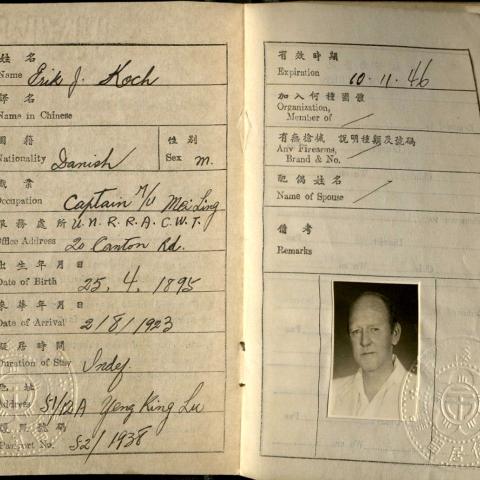 姓名
Name Erik J. Koch
譯名
Name in Chinese
國籍
Nationality Danish
性別
Sex M.
職業
Occupation Captain M/V Mei Ling
服務處所 U.N.R.R.A. C.W.T.
Office Address 20 Canton Rd.
出生年月日
Date of Birth 25. 4. 1895
來華年月日
Date of Arrival 2/8/1923
擬居時間
Duration of Stay Indef.
住址
Address 51/12A Yeng King Lu
護照號碼
Passport No. 52/1938
有效時期
Expiration 10.11.46
加入何種團體
Organization,
Member of
有無槍械 說明種類及號碼
Any Firearms,
Brand & No.
配偶姓名
Name of Spouse
備考
Remarks